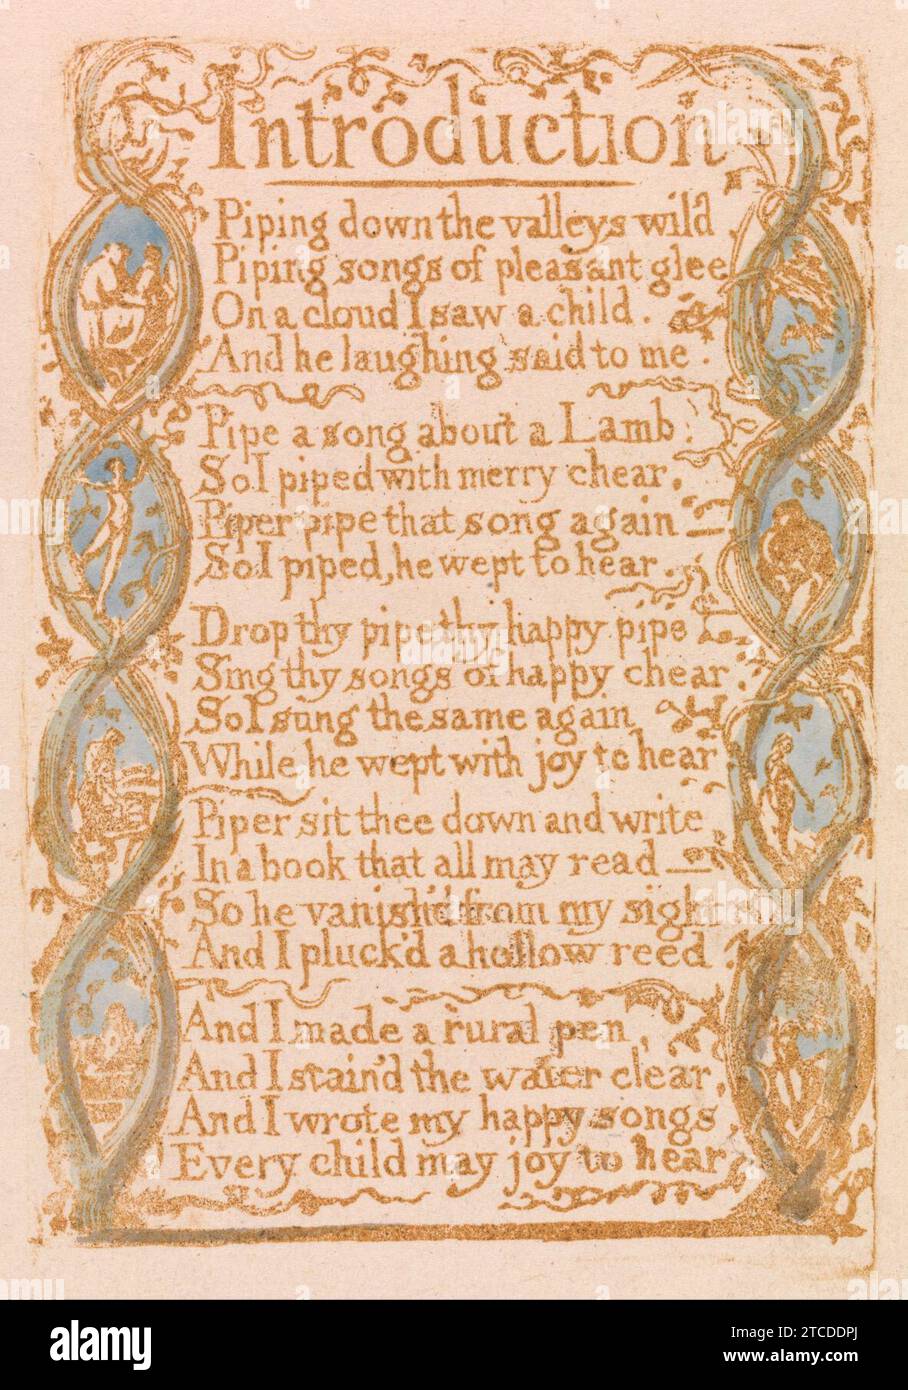 Introduction
Piping down the valleys wild
Piping songs of pleasant glee
On a cloud I saw a child.
And he laughing said to me.
Pipe a song about a Lamb:
So I piped with merry chear,
Piper pipe that song again—
So I piped, he wept to hear.
Drop thy pipe thy happy pipe
Sing thy songs of happy chear,
So I sung the same again
While he wept with joy to hear
Piper sit thee down and write
In a book that all may read—
So he vanish'd from my sight
And I pluck'd a hollow reed.
And I made a rural pen,
And I stain'd the water clear,
And I wrote my happy songs
Every child may joy to hear
alamy
Image ID: 2TCDDPJ
www.alamy.com